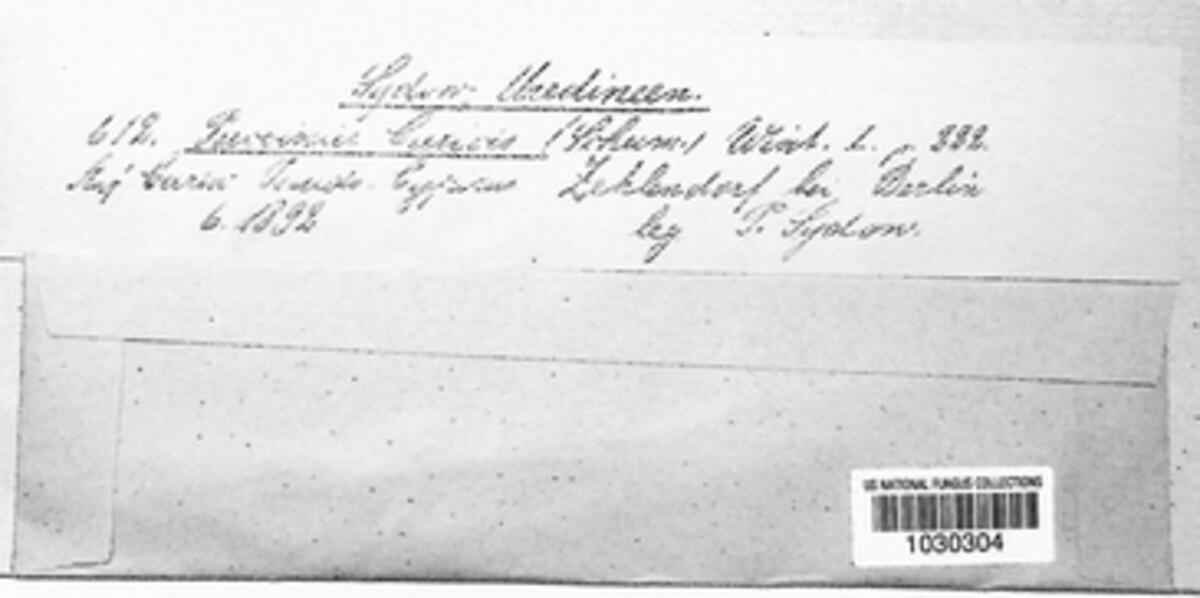 Sydow, Uredineen.
612. Puccinia Caricis (Schum.) Wint. l. p. 222.
Auf Carex Pseudo-Cyperus Zehlendorf bei Berlin
6. 1892 leg P. Sydow.
US NATIONAL FUNGUS COLLECTIONS
1030304